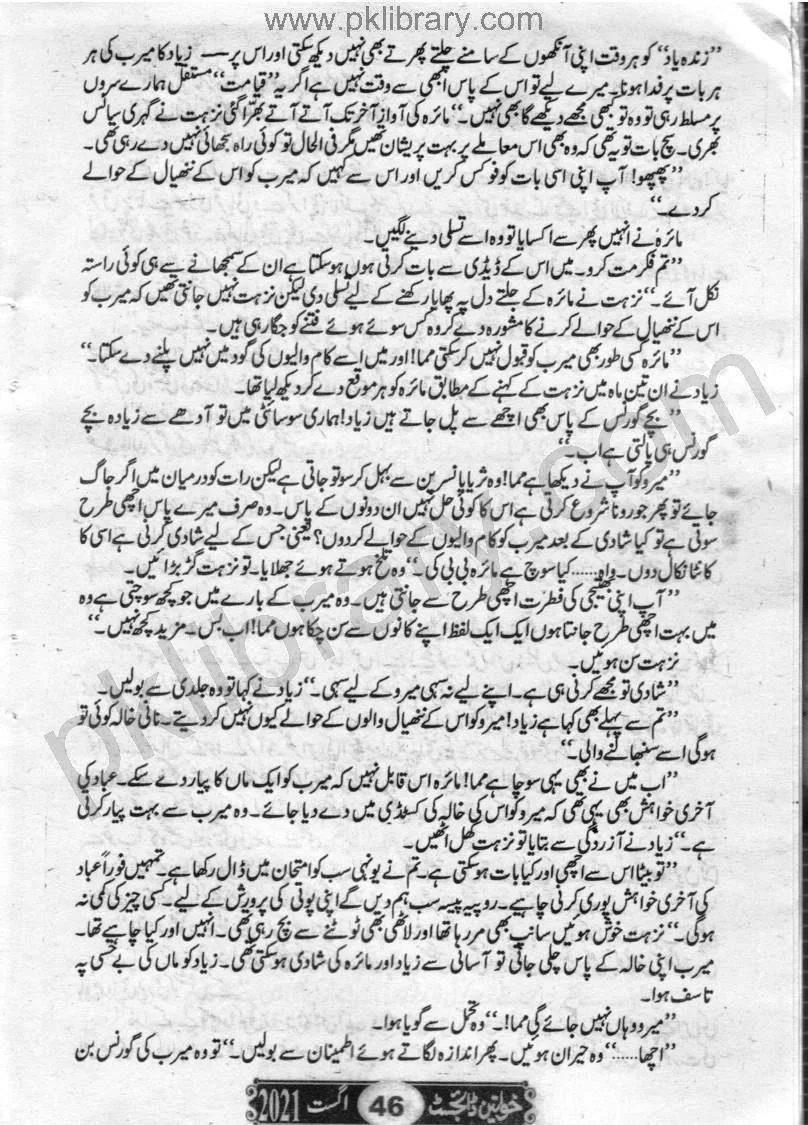 www.pklibrary.com
”زندہ یاد“ کو ہر وقت اپنی آنکھوں کے سامنے چلتے پھرتے بھی نہیں دیکھ سکتی اور اس پر —— زیاد کا میرب کی ہر
ہر بات پر فدا ہونا۔ میرے لیے تو اس کے پاس ابھی سے وقت نہیں ہے اگر یہ ”قیامت“ مستقل ہمارے سروں
پر مسلط رہی تو وہ تو بھی مجھے دیکھے گا بھی نہیں۔“ مائرہ کی آواز آخر تک آتے آتے بھرا گئی نزہت نے گہری سانس
بھری۔ سچ بات تو یہ تھی کہ وہ بھی اس معاملے پر بہت پریشان تھیں مگر فی الحال تو کوئی راہ سجھائی نہیں دے رہی تھی۔
”پھپھو! آپ اپنی اسی بات کو فوکس کریں اور اس سے کہیں کہ میرب کو اس کے ننھیال کے حوالے
کردے۔“
مائرہ نے انہیں پھر سے اکسایا تو وہ اسے تسلی دینے لگیں۔
”تم فکر مت کرو۔ میں اس کے ڈیڈی سے بات کرتی ہوں ہو سکتا ہے ان کے سمجھانے سے ہی کوئی راستہ
نکل آئے۔“ نزہت نے مائرہ کے جلتے دل پہ پھاہا رکھنے کے لیے تسلی دی لیکن نزہت نہیں جانتی تھیں کہ میرب کو
اس کے ننھیال کے حوالے کرنے کا مشورہ دے کر وہ کس سوئے ہوئے فتنے کو جگا رہی ہیں۔
”مائرہ کسی طور بھی میرب کو قبول نہیں کر سکتی مما! اور میں اسے کام والیوں کی گود میں نہیں پلنے دے سکتا۔“
زیاد نے ان تین ماہ میں نزہت کے کہنے کے مطابق مائرہ کو ہر موقع دے کر دیکھ لیا تھا۔
”بچے گورنس کے پاس بھی اچھے سے پل جاتے ہیں زیاد! ہماری سوسائٹی میں تو آدھے سے زیادہ بچے
گورنس ہی پالتی ہے اب۔“
”میرو کو آپ نے دیکھا ہے مما! وہ ثریا یا نسرین سے بہل کر سو تو جاتی ہے لیکن رات کو درمیان میں اگر جاگ
جائے تو پھر جو رونا شروع کرتی ہے اس کا کوئی حل نہیں ان دونوں کے پاس۔ وہ صرف میرے پاس اچھی طرح
سوتی ہے تو کیا شادی کے بعد میرب کو کام والیوں کے حوالے کردوں؟ یعنی جس کے لیے شادی کرنی ہے اسی کا
کانٹا نکال دوں۔ واہ...... کیا سوچ ہے مائرہ بی بی کی۔“ وہ تلخ ہوتے ہوئے جھلایا۔ تو نزہت گڑبڑائیں۔
”آپ اپنی بھتیجی کی فطرت اچھی طرح سے جانتی ہیں۔ وہ میرب کے بارے میں جو کچھ سوچتی ہے وہ
میں بہت اچھی طرح جانتا ہوں ایک ایک لفظ اپنے کانوں سے سن چکا ہوں مما! اب بس۔ مزید کچھ نہیں۔“
نزہت سن ہوئیں۔
”شادی تو مجھے کرنی ہی ہے۔ اپنے لیے نہ سہی میرو کے لیے سہی۔“ زیاد نے کہا تو وہ جلدی سے بولیں۔
”تم سے پہلے بھی کہا ہے زیاد! میرو کو اس کے ننھیال والوں کے حوالے کیوں نہیں کر دیتے۔ نانی خالہ کوئی تو
ہوگی اسے سنبھالنے والی۔“
”اب میں نے بھی یہی سوچا ہے مما! مائرہ اس قابل نہیں کہ میرب کو ایک ماں کا پیار دے سکے۔ عباد کی
آخری خواہش بھی یہی تھی کہ میرو کو اس کی خالہ کی کسٹڈی میں دے دیا جائے۔ وہ میرب سے بہت پیار کرتی
ہے۔“ زیاد نے آزردگی سے بتایا تو نزہت کھل اٹھیں۔
”تو بیٹا اس سے اچھی اور کیا بات ہو سکتی ہے۔ تم نے یونہی سب کو امتحان میں ڈال رکھا ہے۔ تمہیں فوراً عباد
کی آخری خواہش پوری کرنی چاہیے۔ روپیہ پیسہ سب ہم دیں گے اپنی پوتی کی پرورش کے لیے۔ کسی چیز کی کمی نہ
ہوگی۔“ نزہت خوش ہوئیں سانپ بھی مر رہا تھا اور لاٹھی بھی ٹوٹنے سے بچ رہی تھی۔ انہیں اور کیا چاہیے تھا۔
میرب اپنی خالہ کے پاس چلی جاتی تو آسانی سے زیاد اور مائرہ کی شادی ہو سکتی تھی۔ زیاد کو ماں کی بے حسی پہ
تاسف ہوا۔
”میرو وہاں نہیں جائے گی مما!۔“ وہ تحمل سے گویا ہوا۔
”اچھا......“ وہ حیران ہوئیں۔ پھر اندازہ لگاتے ہوئے اطمینان سے بولیں۔ ”تو وہ میرب کی گورنس بن
خواتین ڈائجسٹ 46 اگست 2021
pklibrary.com